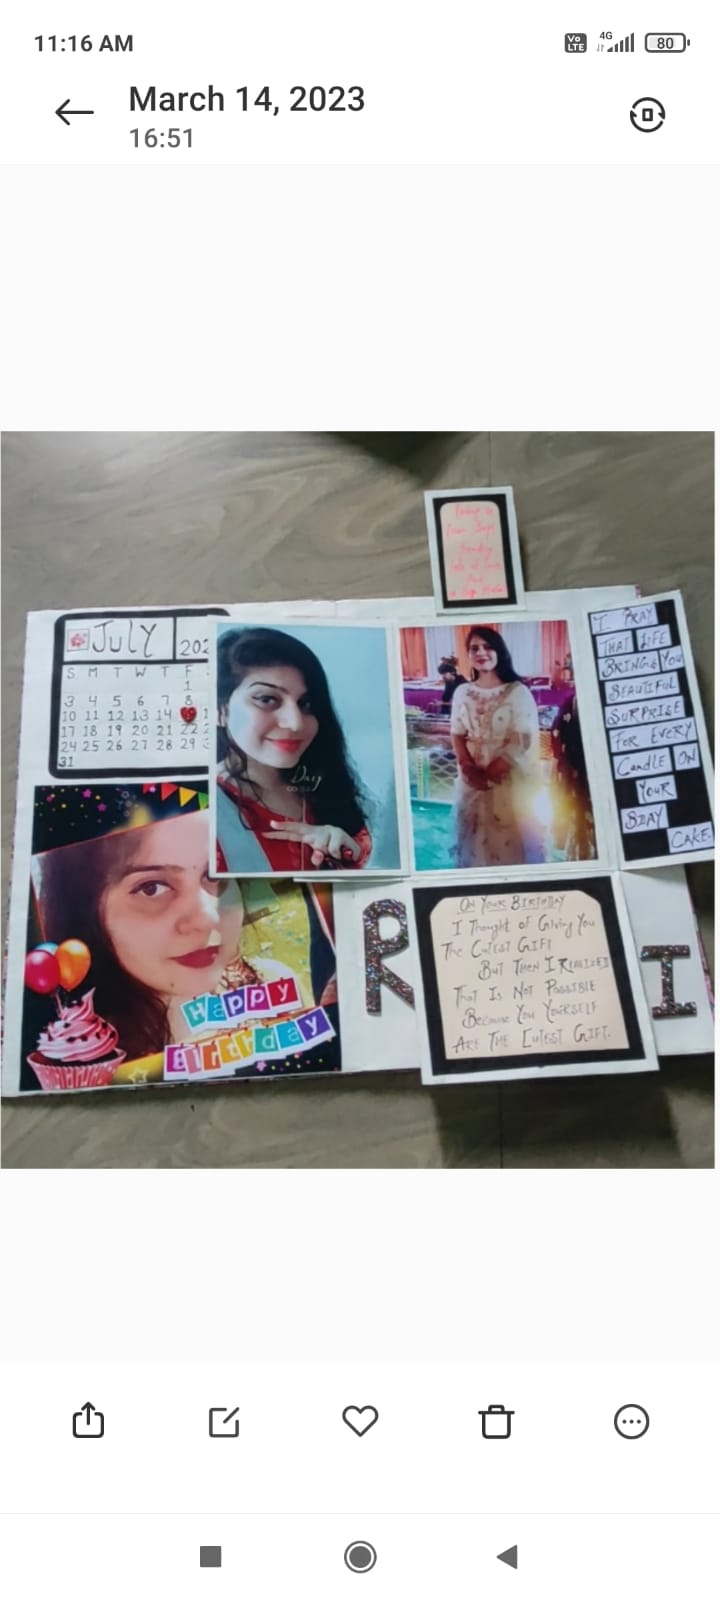 11:16 AM
Vo LTE 4G 80
March 14, 2023
16:51
July 202
S M T W T F
1
3 4 5 6 7 8
10 11 12 13 14 1
17 18 19 20 21 22 2
24 25 26 27 28 29 3
31
Day
Happy
Birthday
R
I
I PRAY
THAT LIFE
BRINGS YOU
BEAUTIFUL
SURPRISE
FOR EVERY
CANDLE ON
YOUR
BDAY
CAKE
ON YOUR BIRTHDAY
I Thought of Giving You
The CUTEST GIFT
BUT THEN I REALIZED
THAT IS NOT POSSIBLE
Because You YOURSELF
ARE THE CUTEST GIFT.